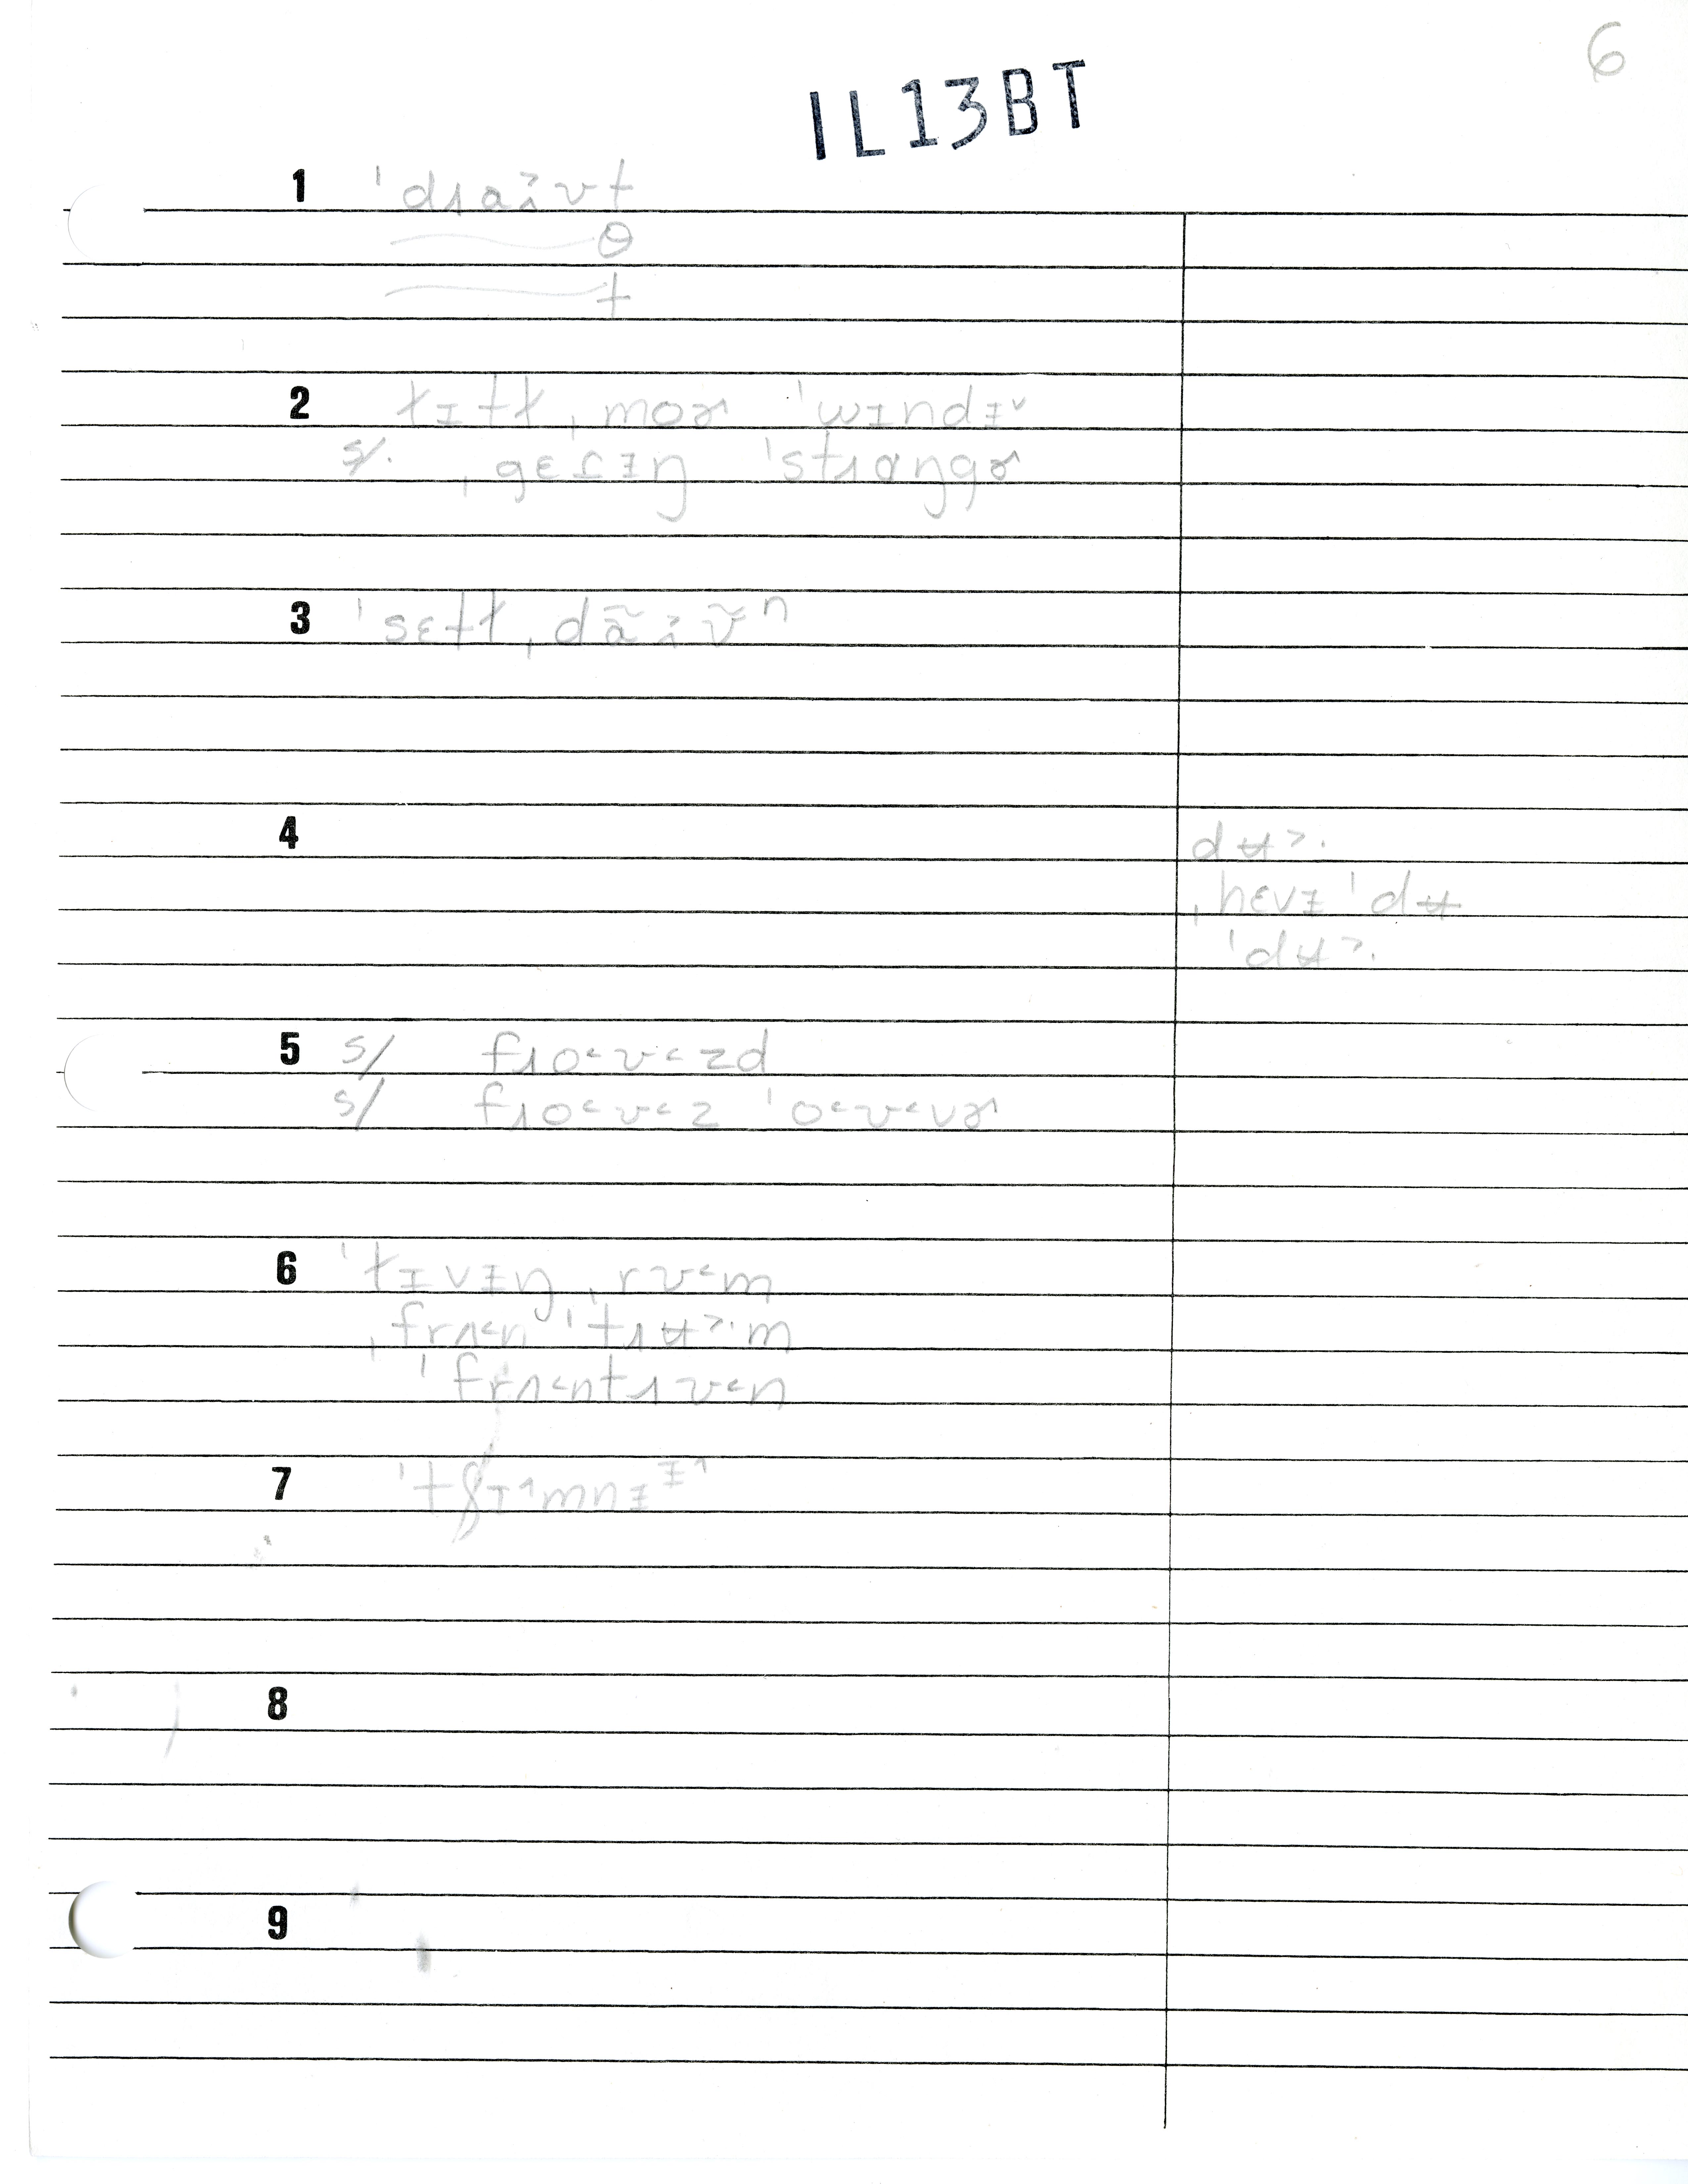 6
IL13BT
1 ˈdɹaʌ̯˃ʊt
θ
t
2 ɫɪtɫ ˌmoɚ ˈwɪndɪ˅
s/. ˌgɛtɪŋ ˈstɹɑŋgɚ
3 ˈsɛtɫ ˌdãʌ̯˃ʊ̃ⁿ
4 dʉ˃·
ˌhɛvɪ ˈdʉ
ˈdʉ˃·
5 s/ fɹo˂ʊ˂zd
s/ fɹo˂ʊ˂z ˈo˂ʊ˂vɚ
6 ˈɫɪvɪŋ ˌrʊ˂m
ˌfrʌ˂n ˈtɹʉ˃·m
ˈfrʌ˂ntɹʊ˂n
7 ˈtʃɪ˄mnɪᶦ˄
8
9